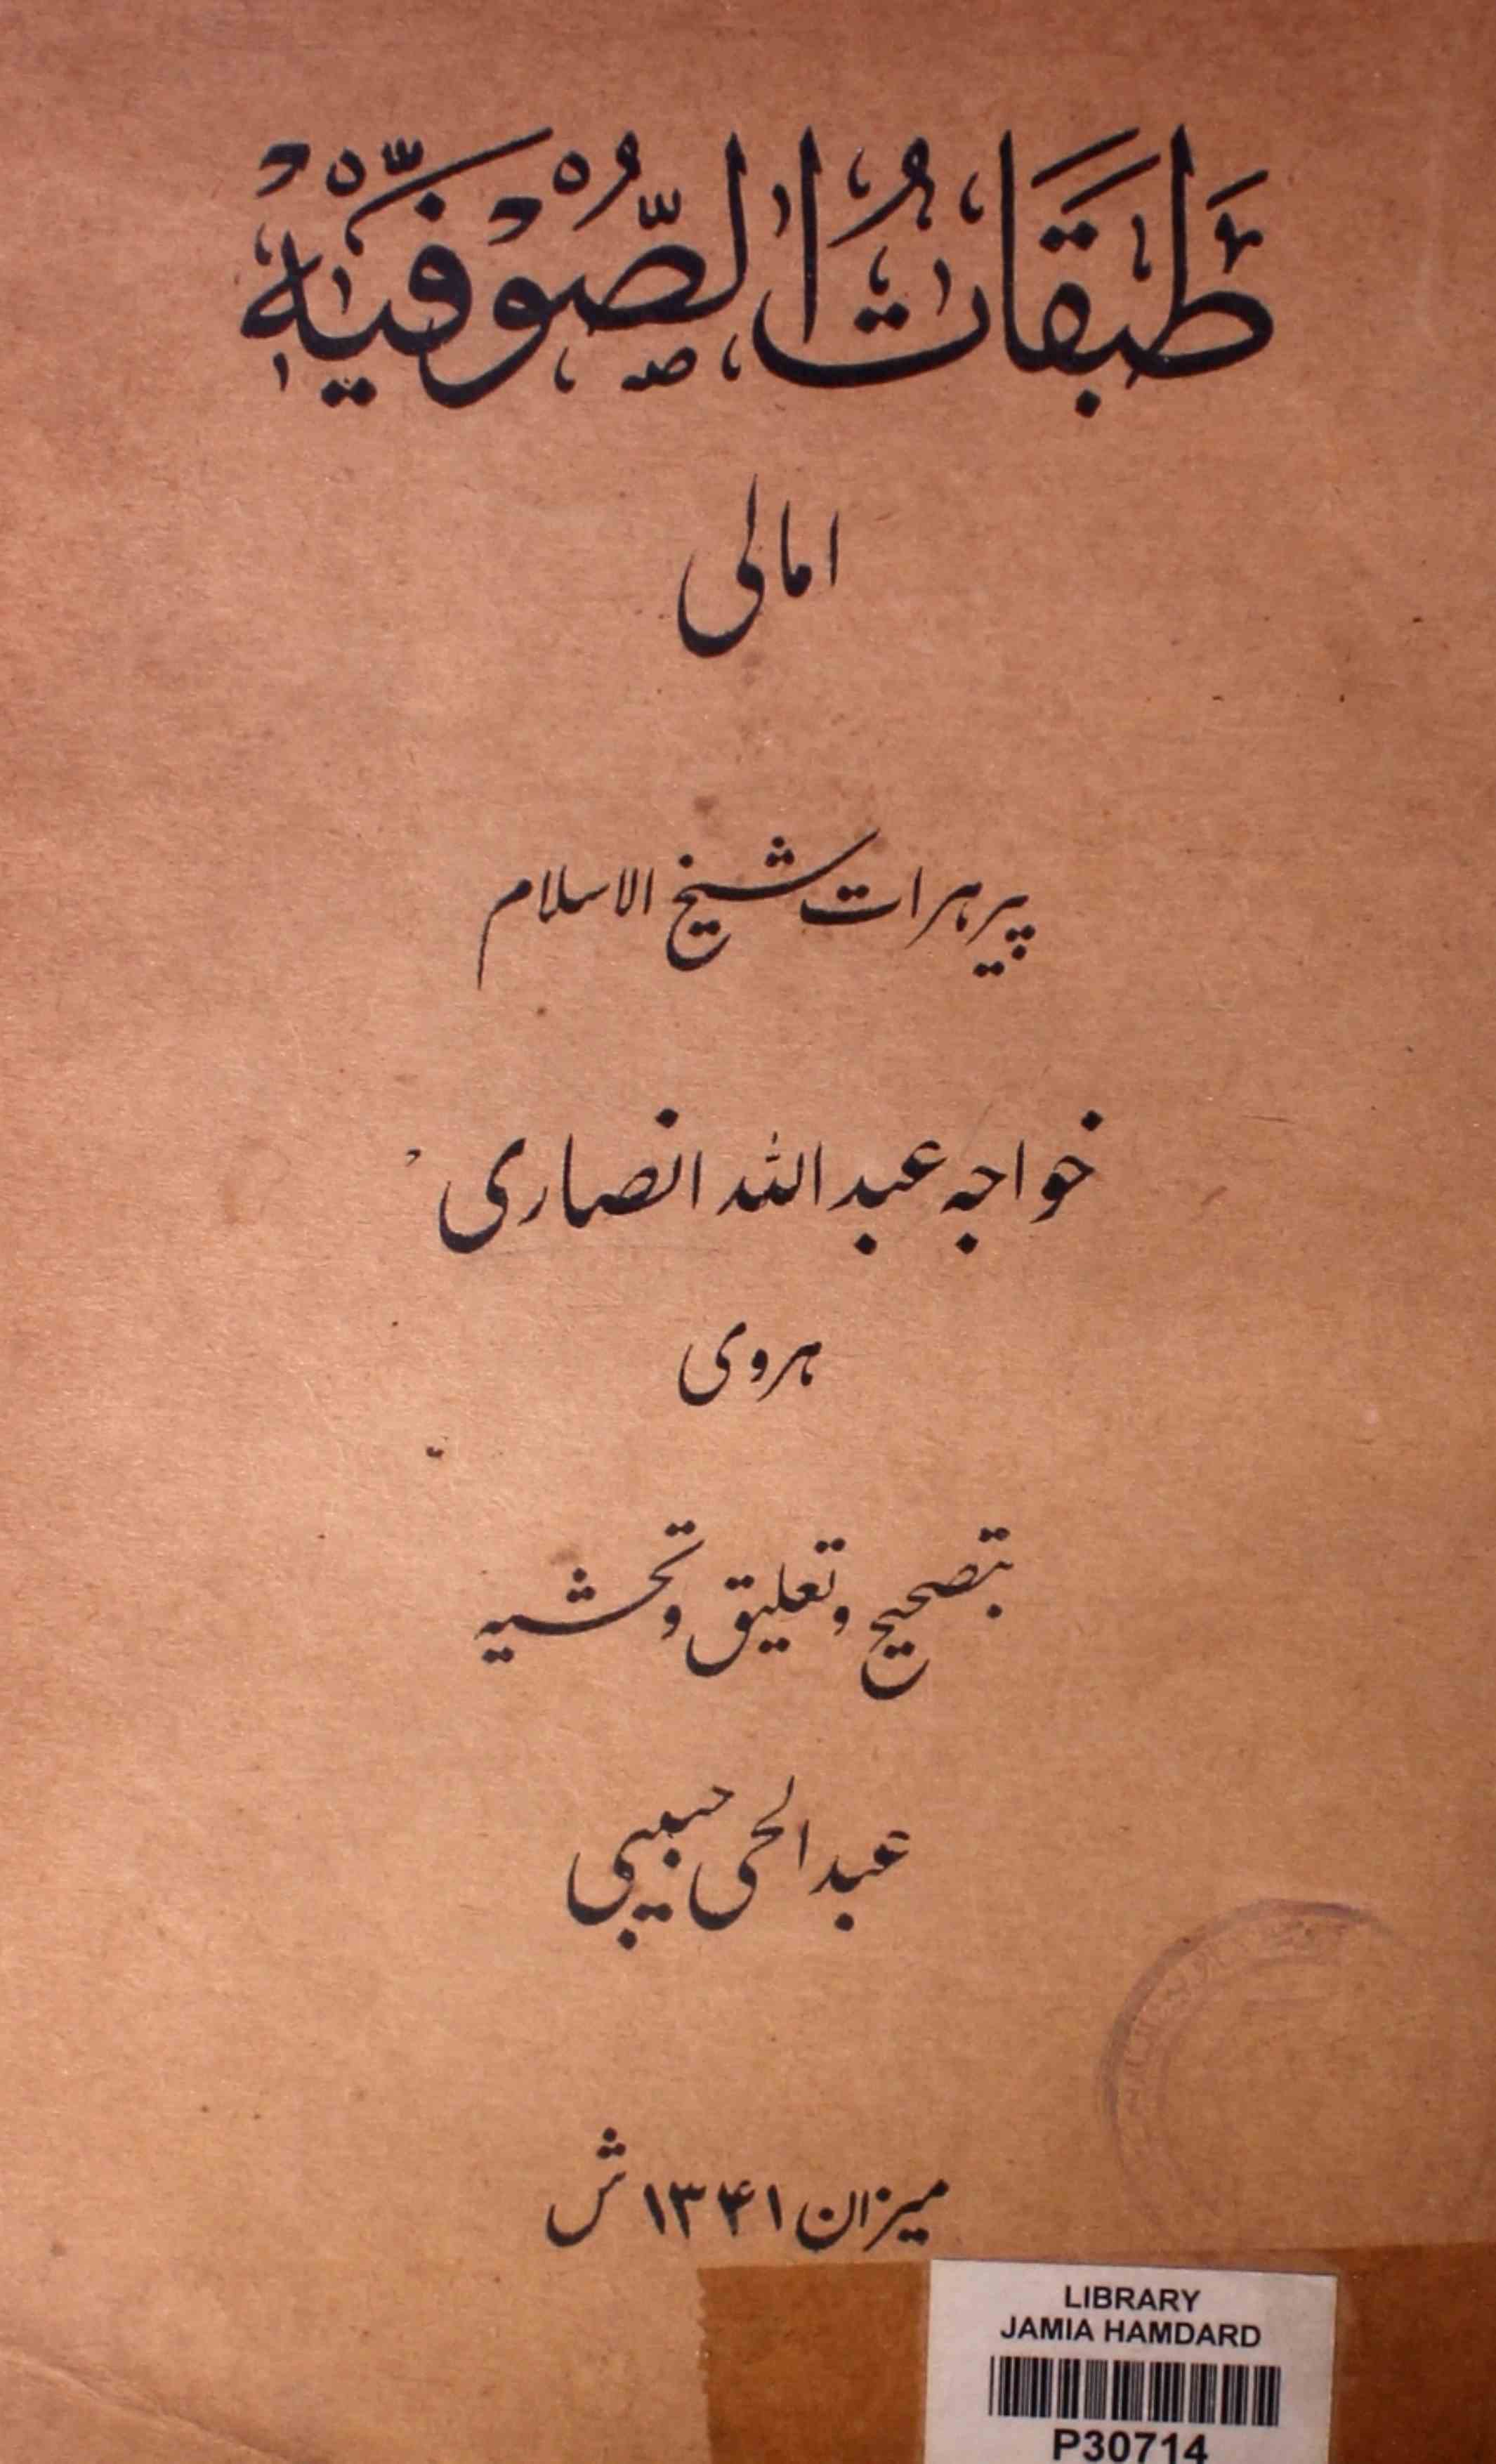 طَبَقَاتُ الصُّوْفِيَّهْ
امالی
پیر هرات شیخ الاسلام
خواجه عبدالله انصاری
هروی
بتصحیح و تعلیق و تحشیه
عبدالحی حبیبی
میزان ۱۳۴۱ ش
LIBRARY
JAMIA HAMDARD
P30714